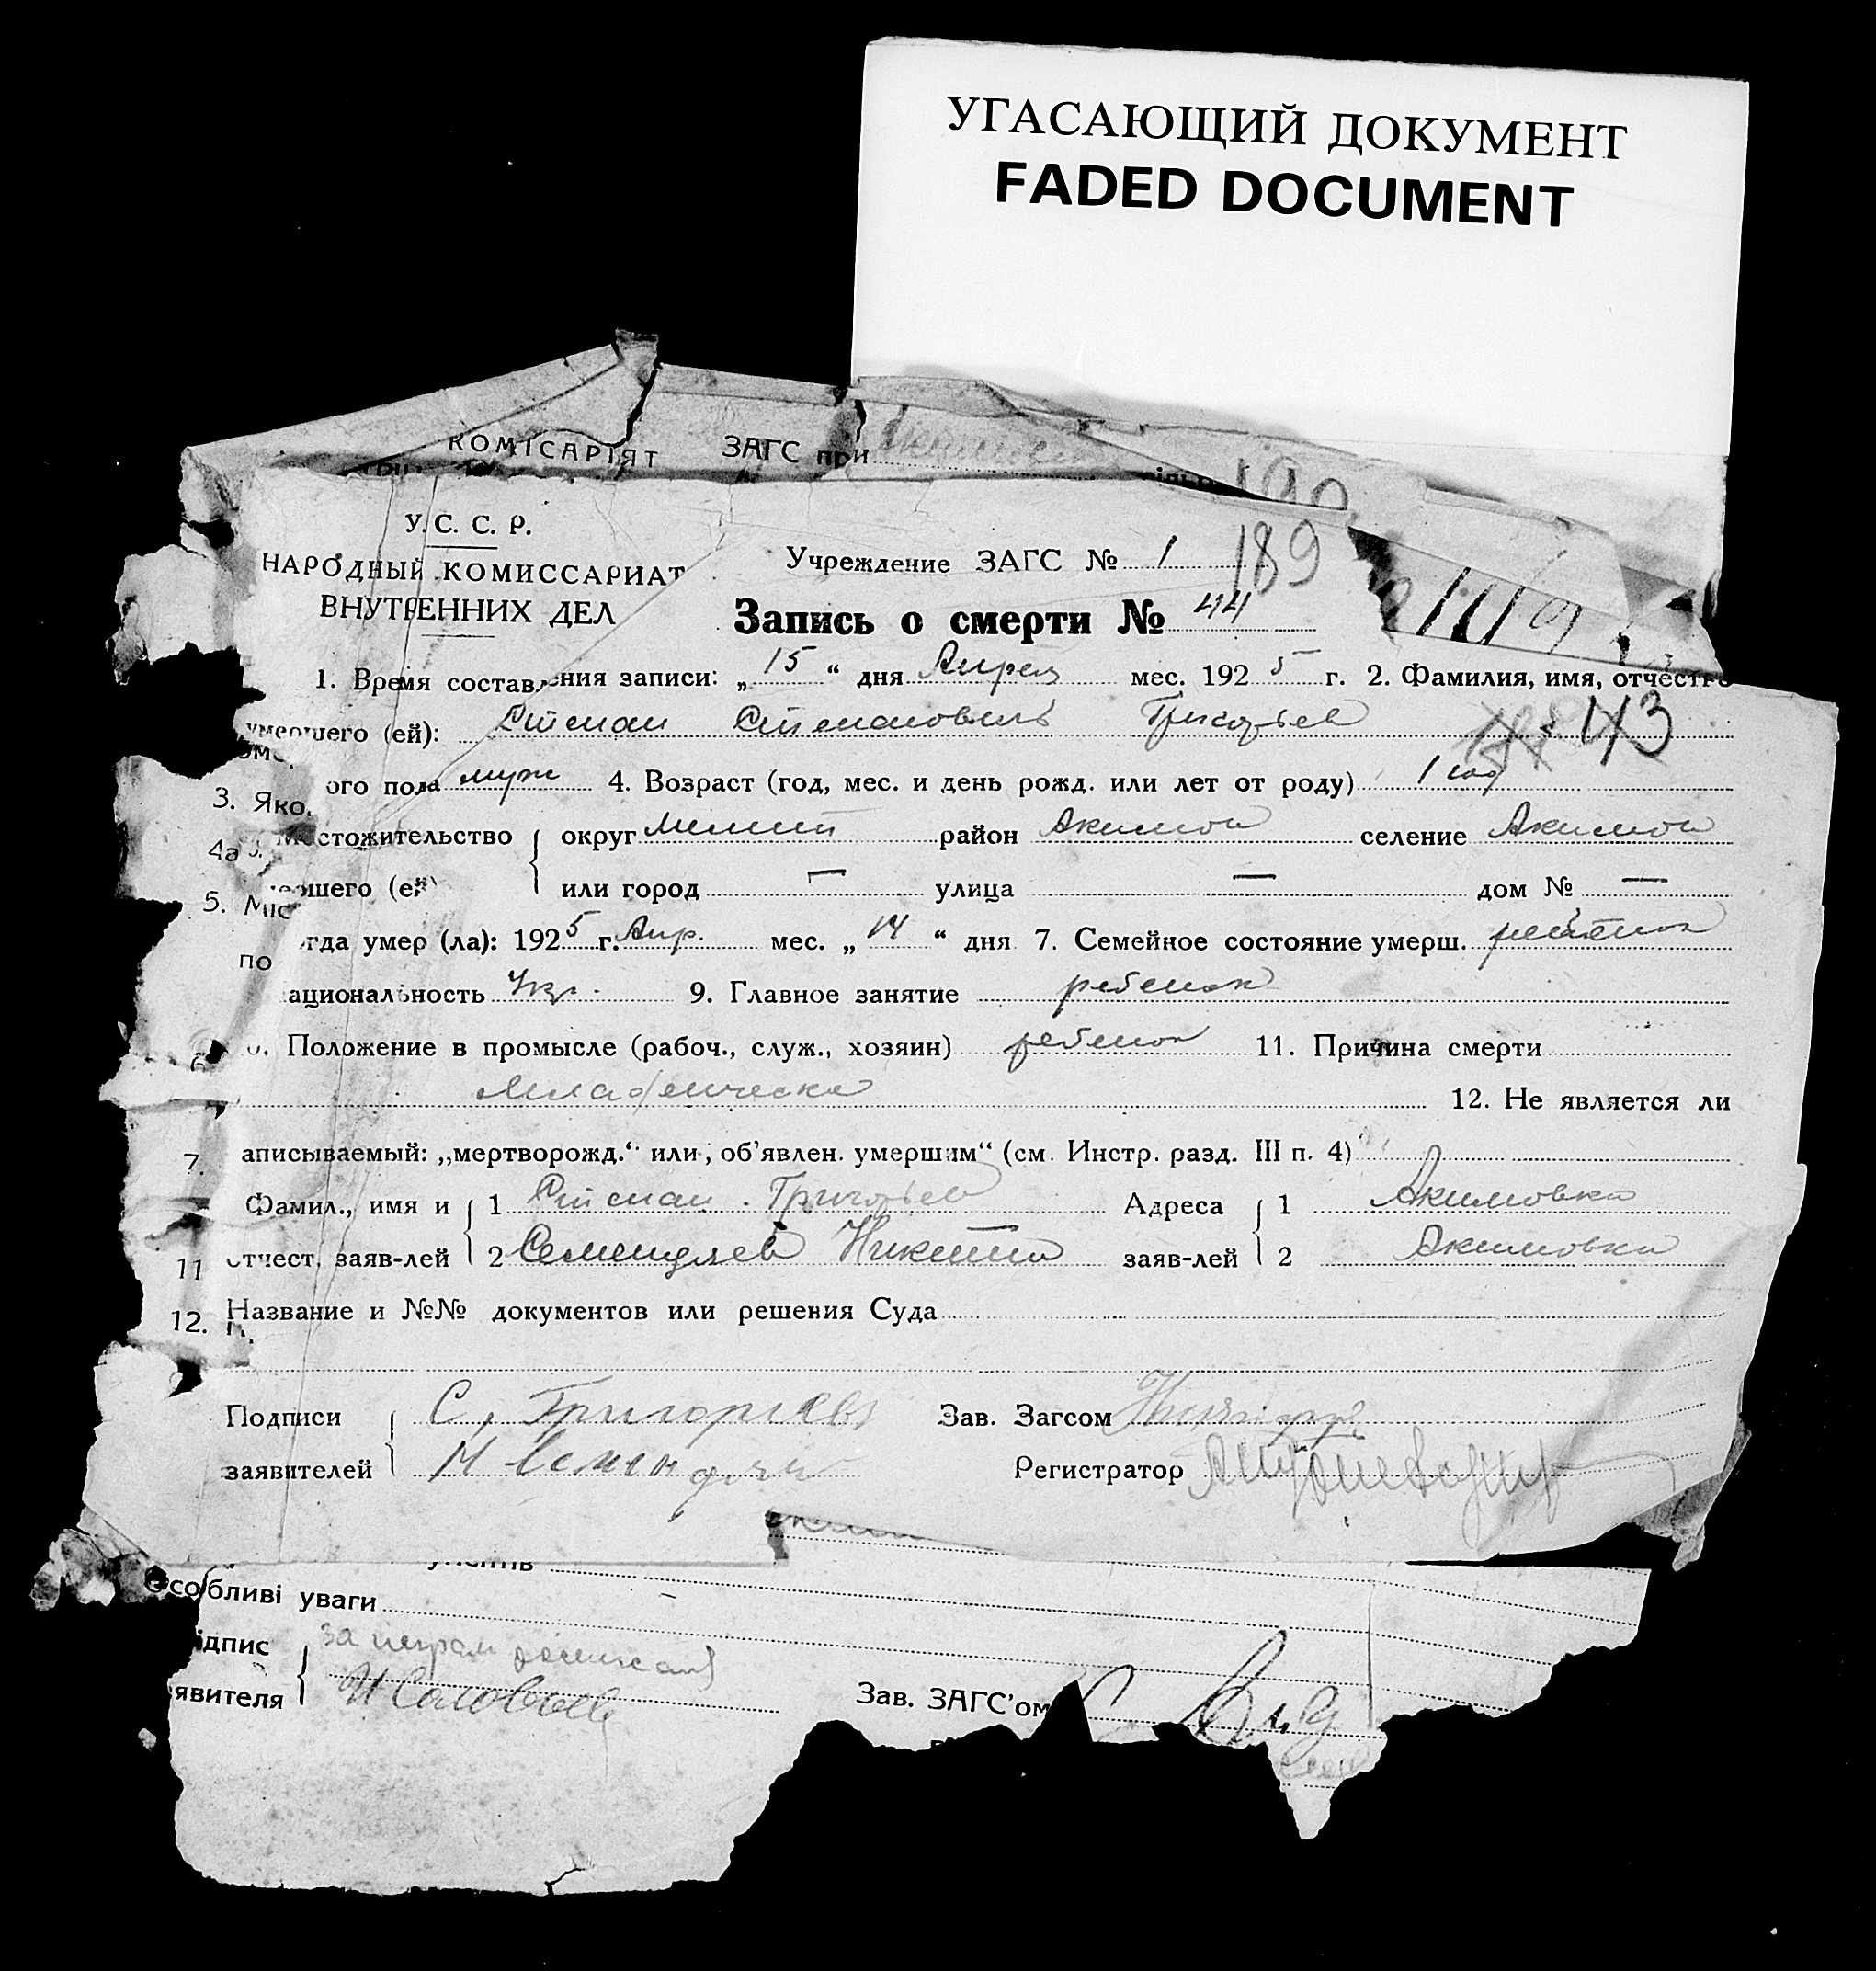 УГАСАЮЩИЙ ДОКУМЕНТ
FADED DOCUMENT
КОМІСАРІЯТ ЗАГС при
190
У. С. С. Р.
НАРОДНЫЙ КОМИССАРИАТ
ВНУТРЕННИХ ДЕЛ
Учреждение ЗАГС № 1 189
Запись о смерти № 44
1. Время составления записи: „ 15 “ дня Апреля мес. 1925 г. 2. Фамилия, имя, отчество
умершего (ей): Степан Степанович Григорьев 143
ого пола муж 4. Возраст (год, мес. и день рожд. или лет от роду) 1 год
3. Яко
стожительство округ Мелит район Акимов селение Акимов
4а
шего (ей) или город — улица — дом № —
5. Міс
гда умер (ла): 1925 г. Апр. мес. „ 14 “ дня 7. Семейное состояние умерш. ребенок
по
ациональность Укр. 9. Главное занятие ребенок
6
0. Положение в промысле (рабоч., служ., хозяин) ребенок 11. Причина смерти
Младенческа 12. Не является ли
7. аписываемый: „мертворожд.“ или „об'явлен. умершим“ (см. Инстр. разд. III п. 4)
Фамил., имя и 1 Степан Григорьев Адреса 1 Акимовка
11 отчест. заяв-лей 2 Семендяев Никита заяв-лей 2 Акимовка
12. Название и №№ документов или решения Суда
Подписи С. Григориев Зав. Загсом
заявителей Н Семендяев Регистратор
Особливі уваги —
ідпис за неграм
явителя Н Соловьев Зав. ЗАГС'ом